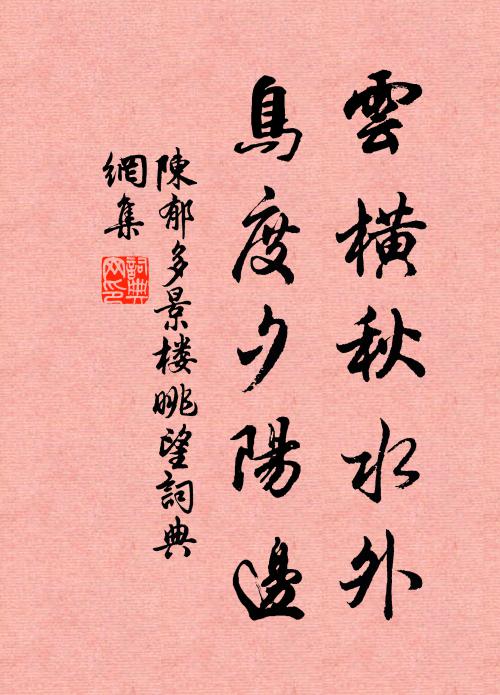 雲橫秋水外
鳥度夕陽邊
陳郁多景楼眺望詞典
網集
詞典
网印